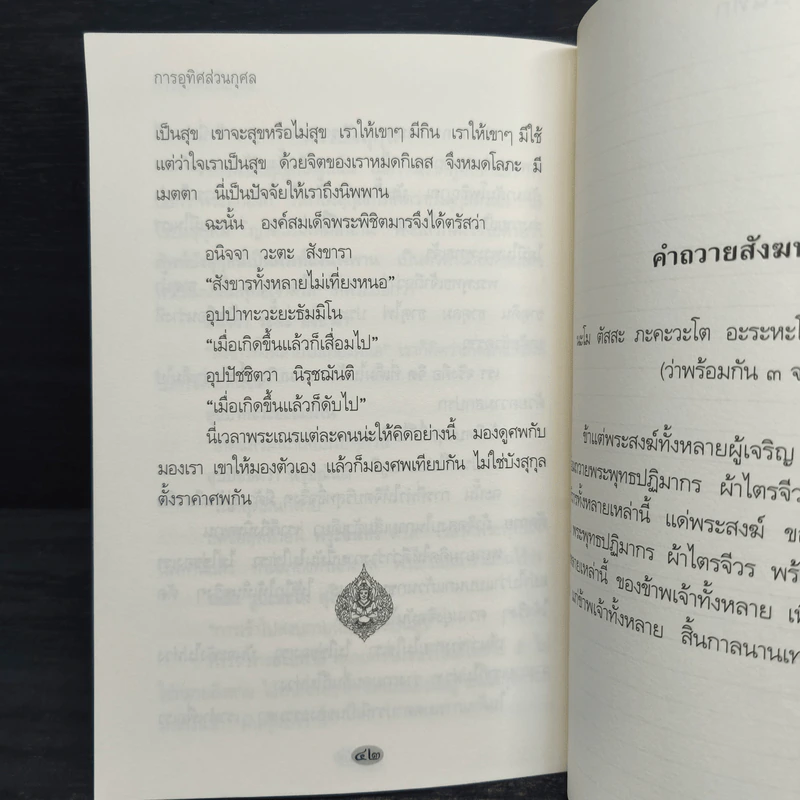 การอุทิศส่วนกุศล
เป็นสุข เขาจะสุขหรือไม่สุข เราให้เขาๆ มีกิน เราให้เขาๆ มีใช้
แต่ว่าใจเราเป็นสุข ด้วยจิตของเราหมดกิเลส จึงหมดโลภะ มี
เมตตา นี่เป็นปัจจัยให้เราถึงนิพพาน
ฉะนั้น องค์สมเด็จพระพิชิตมารจึงได้ตรัสว่า
อนิจจา วะตะ สังขารา
“สังขารทั้งหลายไม่เที่ยงหนอ”
อุปปาทะวะยะธัมมิโน
“เมื่อเกิดขึ้นแล้วก็เสื่อมไป”
อุปปัชชิตวา นิรุชฌันติ
“เมื่อเกิดขึ้นแล้วก็ดับไป”
นี่เวลาพระเณรแต่ละคนน่ะให้คิดอย่างนี้ มองดูศพกับ
มองเรา เขาให้มองตัวเอง แล้วก็มองศพเทียบกัน ไม่ใช่บังสุกุล
ตั้งราคาศพกัน
๔๒
คำถวายสังฆท
นะโม ตัสสะ ภะคะวะโต อะระหะโ
(ว่าพร้อมกัน ๓ จ
ข้าแต่พระสงฆ์ทั้งหลายผู้เจริญ
ถวายพระพุทธปฏิมากร ผ้าไตรจีว
ทั้งหลายเหล่านี้ แด่พระสงฆ์ ข
พระพุทธปฏิมากร ผ้าไตรจีวร พร้
หลายเหล่านี้ ของข้าพเจ้าทั้งหลาย เ
แก่ข้าพเจ้าทั้งหลาย สิ้นกาลนานเท